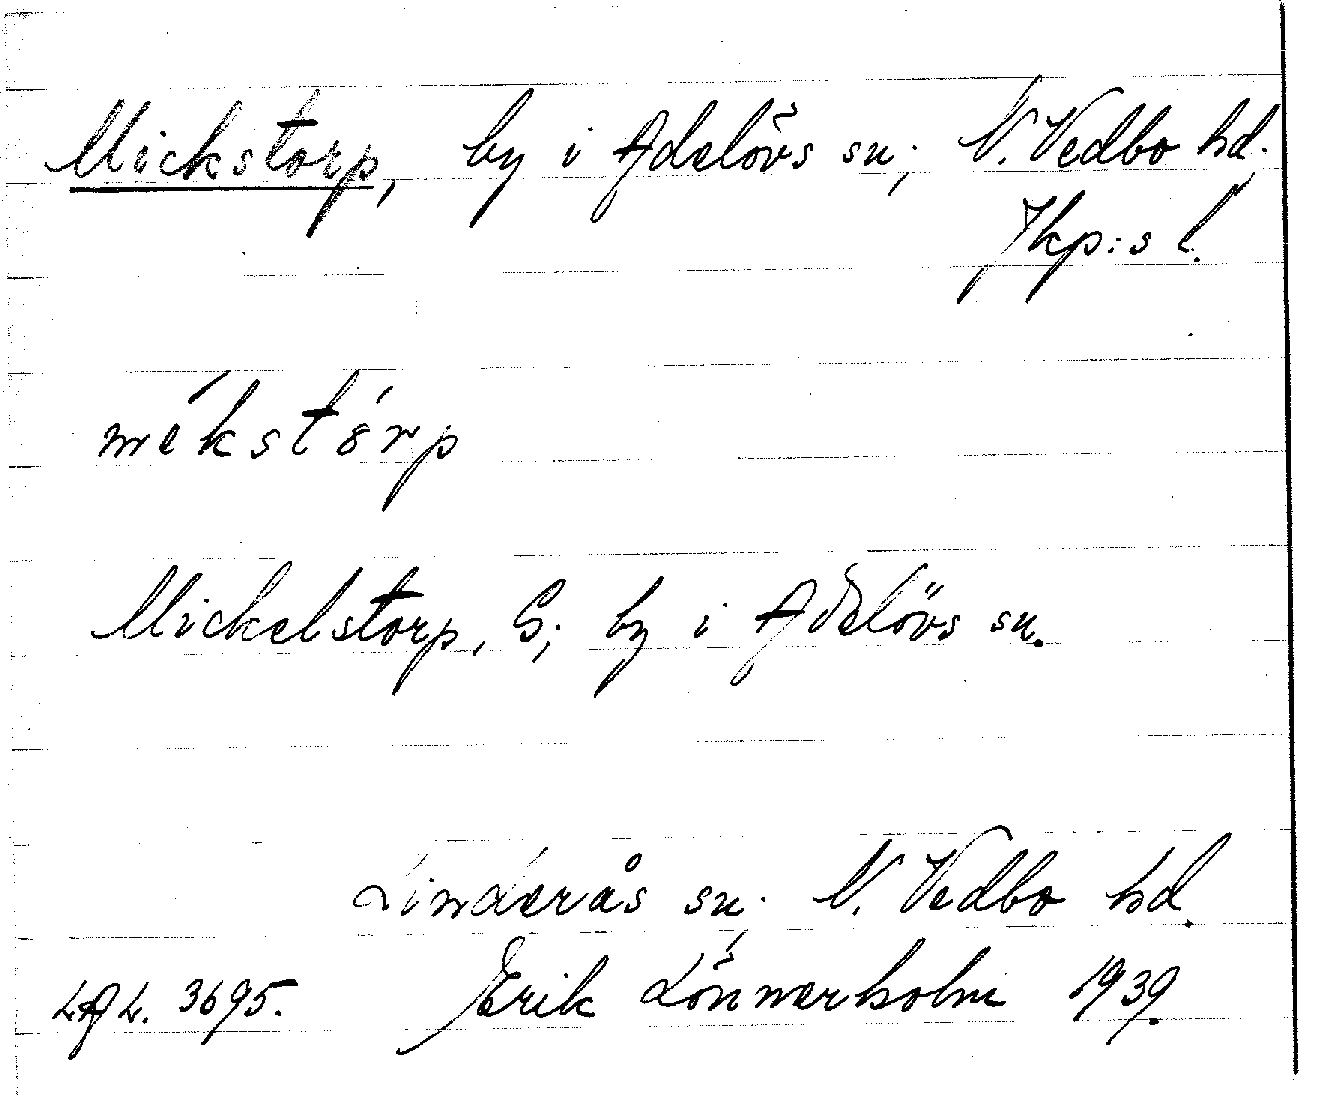 Mickstorp, by i Adelövs sn; N. Vedbo hd.
Jkp:s l.
mékstórp
Mickelstorp, G; by i Adelövs sn.
Linderås sn. N. Vedbo hd.
LAL. 3695. Erik Lönnerholm 1939.